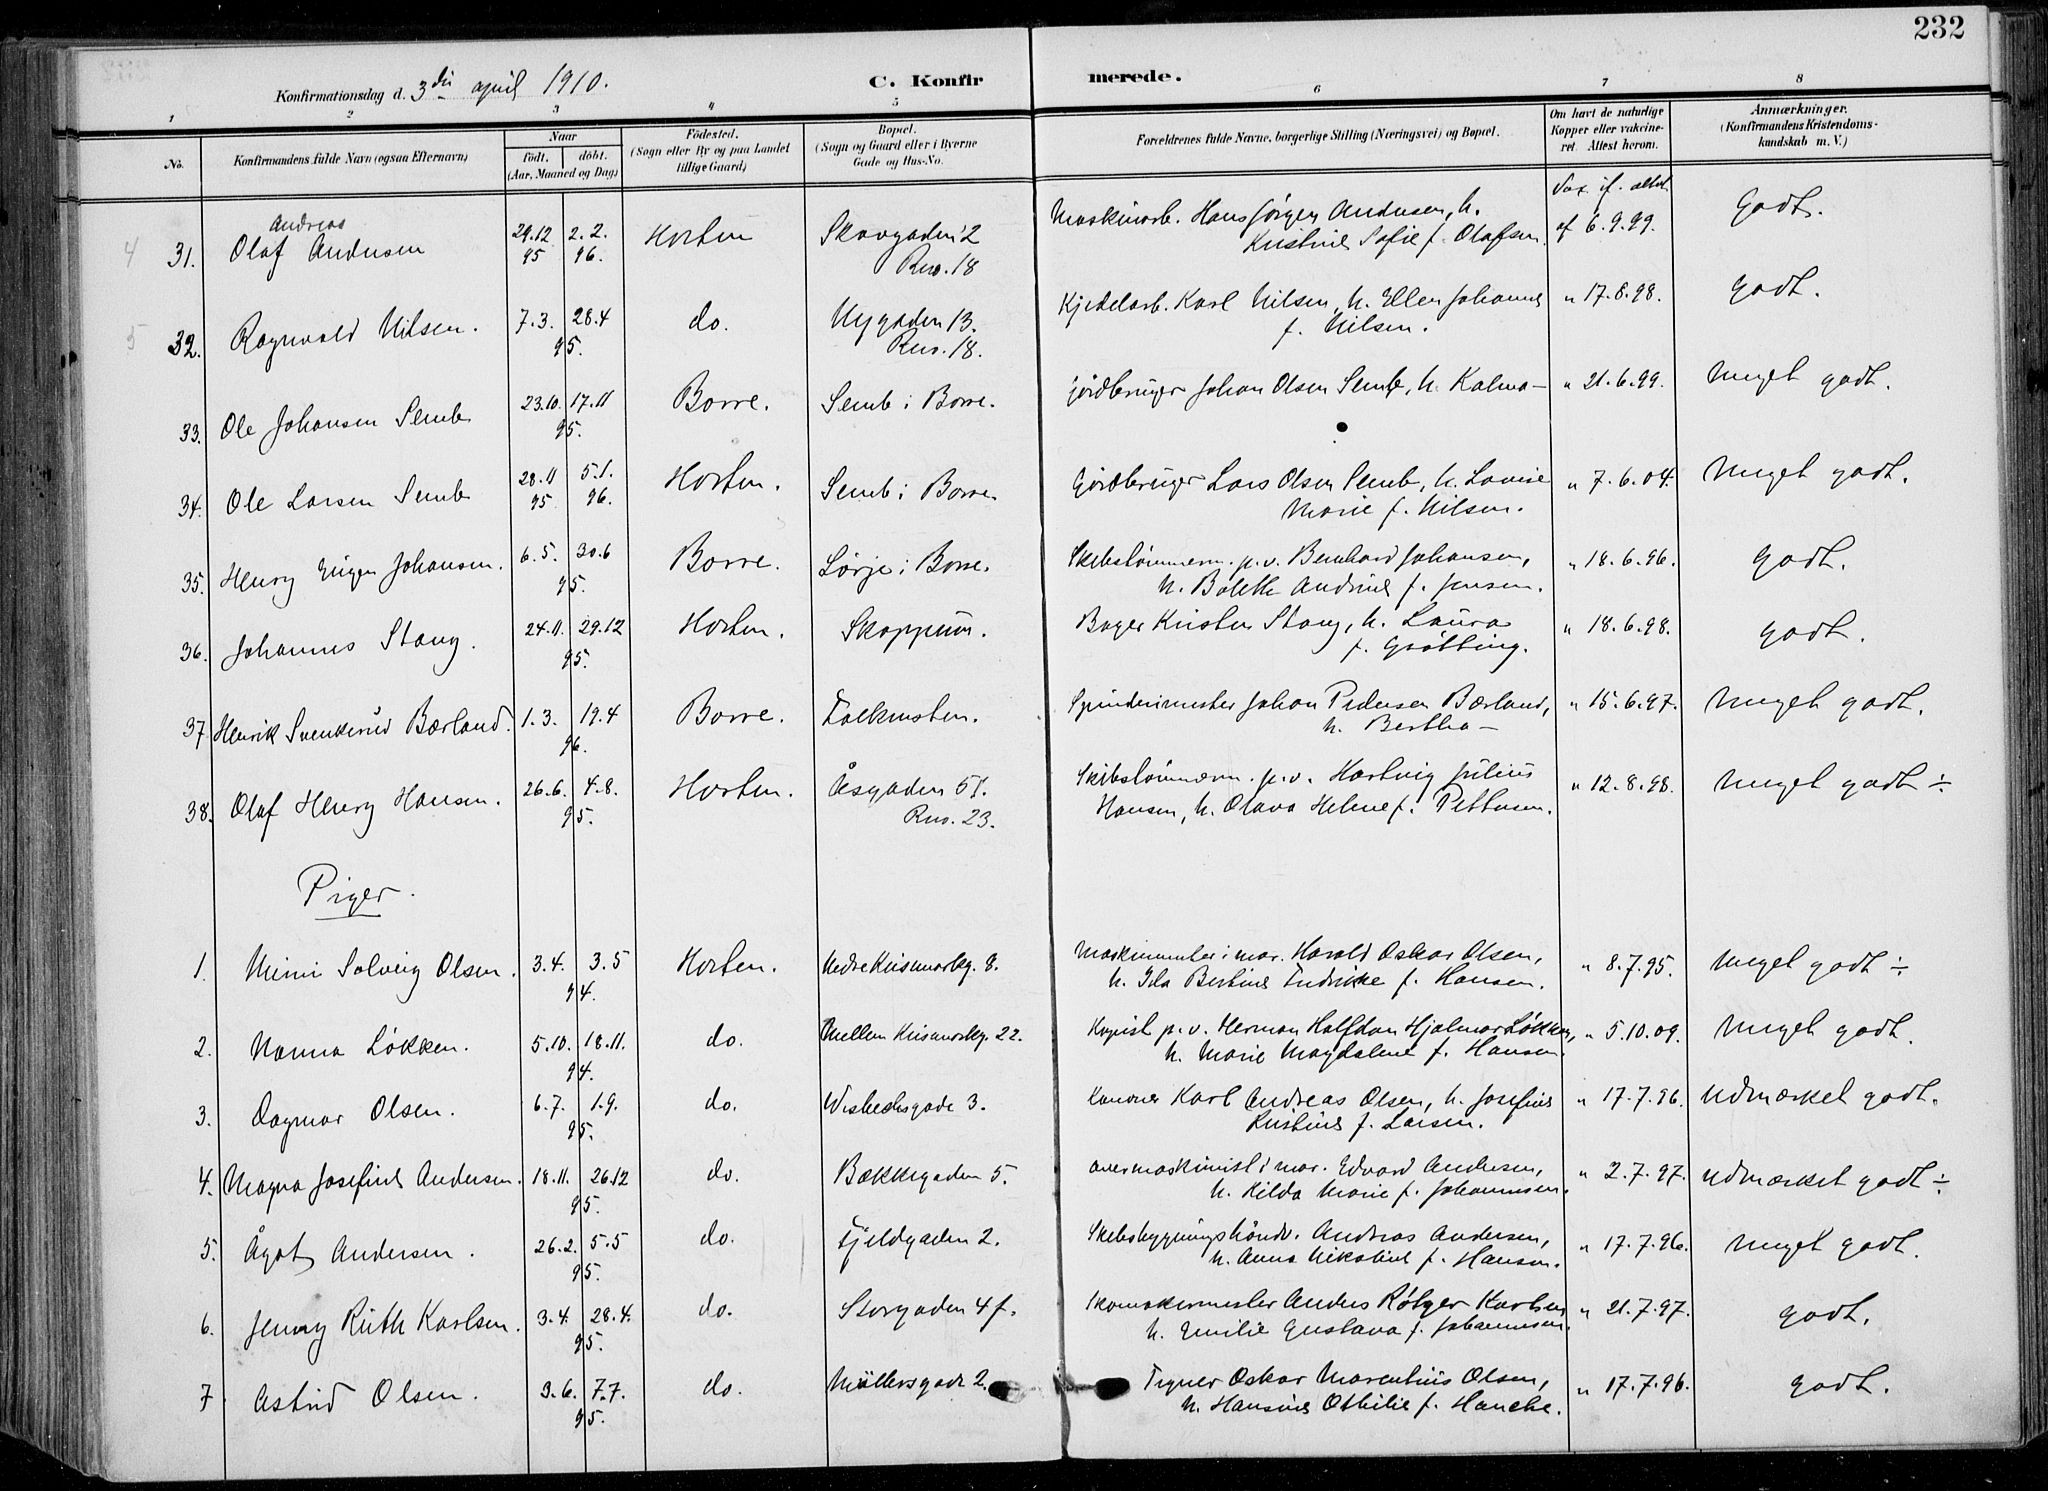 232
Konfirmationsdag d. 3die april 1910.
C. Konfirmerede.
1 2 3 4 5 6 7 8
No.
Konfirmandens fulde Navn (ogsaa Efternavn)
Naar
født. døbt.
(Aar, Maaned og Dag)
Fødested.
(Sogn eller By og paa Landet
tillige Gaard)
Bopæl.
(Sogn og Gaard eller i Byerne
Gade og Hus-No.
Forældrenes fulde Navne, borgerlige Stilling (Næringsvei) og Bopæl.
Om havt de naturlige
Kopper eller vakcine-
ret. Attest herom.
Anmærkninger.
(Konfirmandens Kristendoms-
kundskab m. V.)
Vax. if. attest
Andreas
4 31. Olaf Andersen 29.12 2.2. Horten Skovgaden 2 Maskinarb. Hans Jørgen Andersen, h. af 6.9.99. Godt.
95 96. Rno. 18 Kristine Sofie f. Olafsen.
5 32. Ragnvald Nilsen. 7.3. 28.4 do. Nygaden 13. Kjedelarb. Karl Nilsen, h. Ellen Johanne " 17.8.98. Godt.
95. Rno. 18. f. Nilsen.
33. Ole Johansen Semb 23.10. 17.11 Borre. Semb i Borre. Gårdbruger Johan Olsen Semb, h. Kalma — " 21.6.99. Meget godt.
95.
34. Ole Larsen Semb 28.11 5.1. Horten. Semb i Borre. Gårdbruger Lars Olsen Semb, h. Lovise " 7.6.04. Meget godt.
95 96. Marie f. Nilsen.
35. Henry Eugen Johansen. 6.5. 30.6 Borre. Lørje i Borre. Skibstømmerm. p.v. Bernhard Johansen, " 18.6.96. Godt.
95. h. Bolette Andrine f. Jensen.
36. Johannes Stang. 24.11. 29.12 Horten. Skoppum. Bager Kristen Stang, h. Laura " 18.6.98. Godt.
95. f. Grøtting.
37. Henrik Svenkerud Bærland. 1.3. 19.4 Borre. Falkensten. Spinderimester Johan Pedersen Bærland, " 15.6.97. Meget godt.
96. h. Bertha —
38. Olaf Henry Hansen. 26.6. 4.8. Horten. Åsgaden 51. Skibstømmerm. p.v. Hartvig Julius " 12.8.98. Meget godt ÷
95. Rno. 23. Hansen, h. Olava Helene f. Pettersen.
Piger.
1. Mimi Solveig Olsen. 3.4. 3.5 Horten. Nedre Keisemarkg. 8. Maskinmester i mar. Harald Oskar Olsen, " 8.7.95. Meget godt ÷
94. h. Ida Bertine Fredrikke f. Hansen.
2. Nanna Løkken. 5.10. 18.11. do. Mellem Keisemarkg. 22. Kopist p.v. Herman Halfdan Hjalmar Løkken, " 5.10.09. Meget godt.
94. h. Marie Magdalene f. Hansen.
3. Dagmar Olsen. 6.7. 1.9. do. Wisbechsgade 3. Kanoner Karl Andreas Olsen, h. Josefine " 17.7.96. Udmærket godt.
95. Kristine f. Larsen.
4. Magna Josefine Andersen. 18.11. 26.12 do. Bækkegaden 5. Overmaskinist i mar. Edvard Andersen, " 2.7.97. Udmærket godt ÷
95. h. Hilda Marie f. Johannesen.
5. Ågot Andersen. 26.2. 5.5 do. Fjeldgaden 2. Skibsbygningshåndv. Andreas Andersen, " 17.7.96. Meget godt.
95. h. Anna Nikoline f. Hansen.
6. Jenny Ruth Karlsen. 3.4. 28.4. do. Storgaden 4f. Skomakermester Anders Røtger Karlsen " 21.7.97. Godt.
95. h. Emilie Gustava f. Johannesen.
7 Astrid Olsen. 3.6. 7.7. do. Møllersgade 2. Tegner Oskar Marentius Olsen, " 17.7.96. Godt.
95. h. Hansine Othilie f. Hanche.